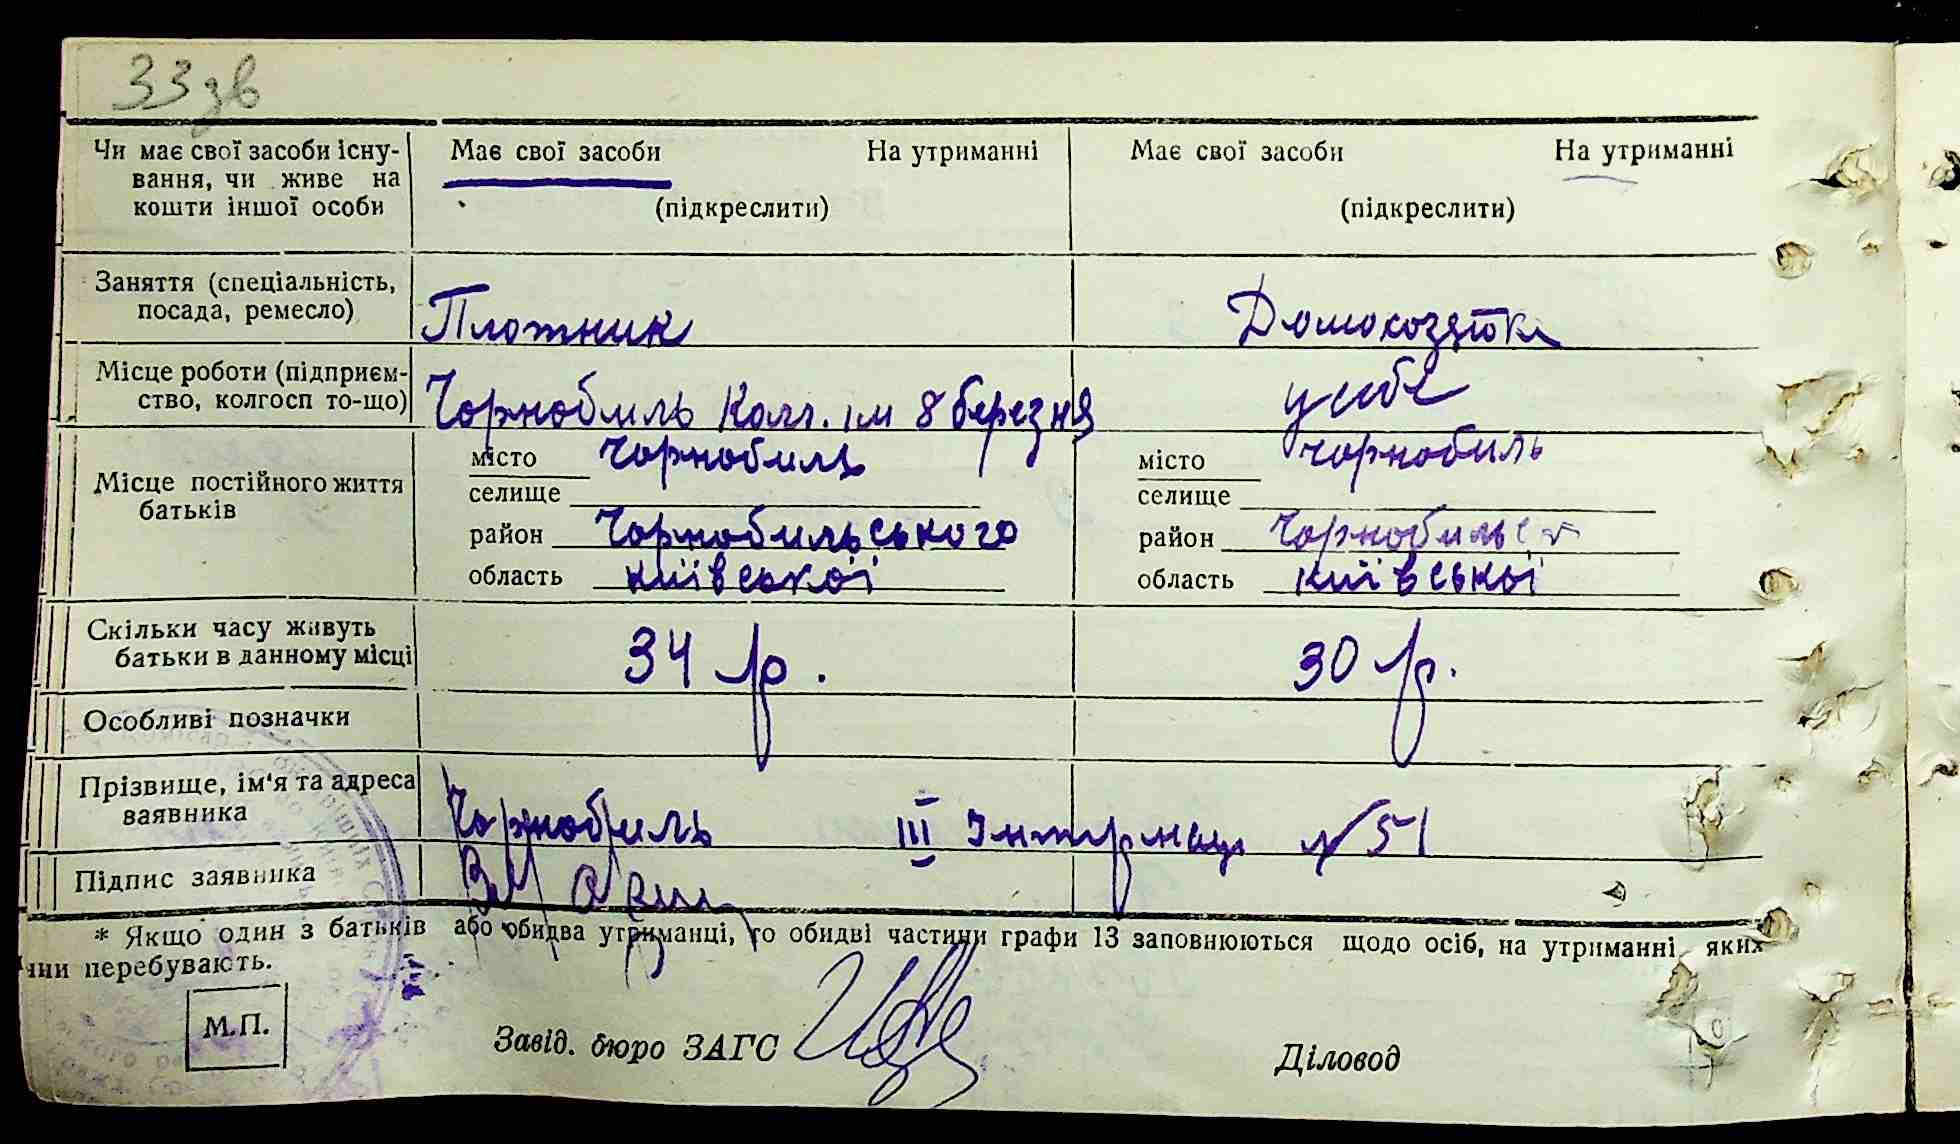 33 зв
Чи має свої засоби існу-
вання, чи живе на
кошти іншої особи
Має свої засоби На утриманні
(підкреслити)
Має свої засоби На утриманні
(підкреслити)
Заняття (спеціальність,
посада, ремесло)
Плотник
Домохозяйка
Місце роботи (підприєм-
ство, колгосп то-що)
Чорнобиль Колг. ім 8 березня
у себе
Місце постійного життя
батьків
місто Чорнобиль
селище
район Чорнобильського
область київської
місто Чорнобиль
селище
район Чорнобильськ
область київської
Скільки часу живуть
батьки в данному місці
34 р.
30 р.
Особливі позначки
Прізвище, ім'я та адреса
заявника
Чорнобиль III Інтернац №51
Підпис заявника
* Якщо один з батьків або обидва утриманці, то обидві частини графи 13 заповнюються щодо осіб, на утриманні яких
перебувають.
М.П.
Завід. бюро ЗАГС
Діловод